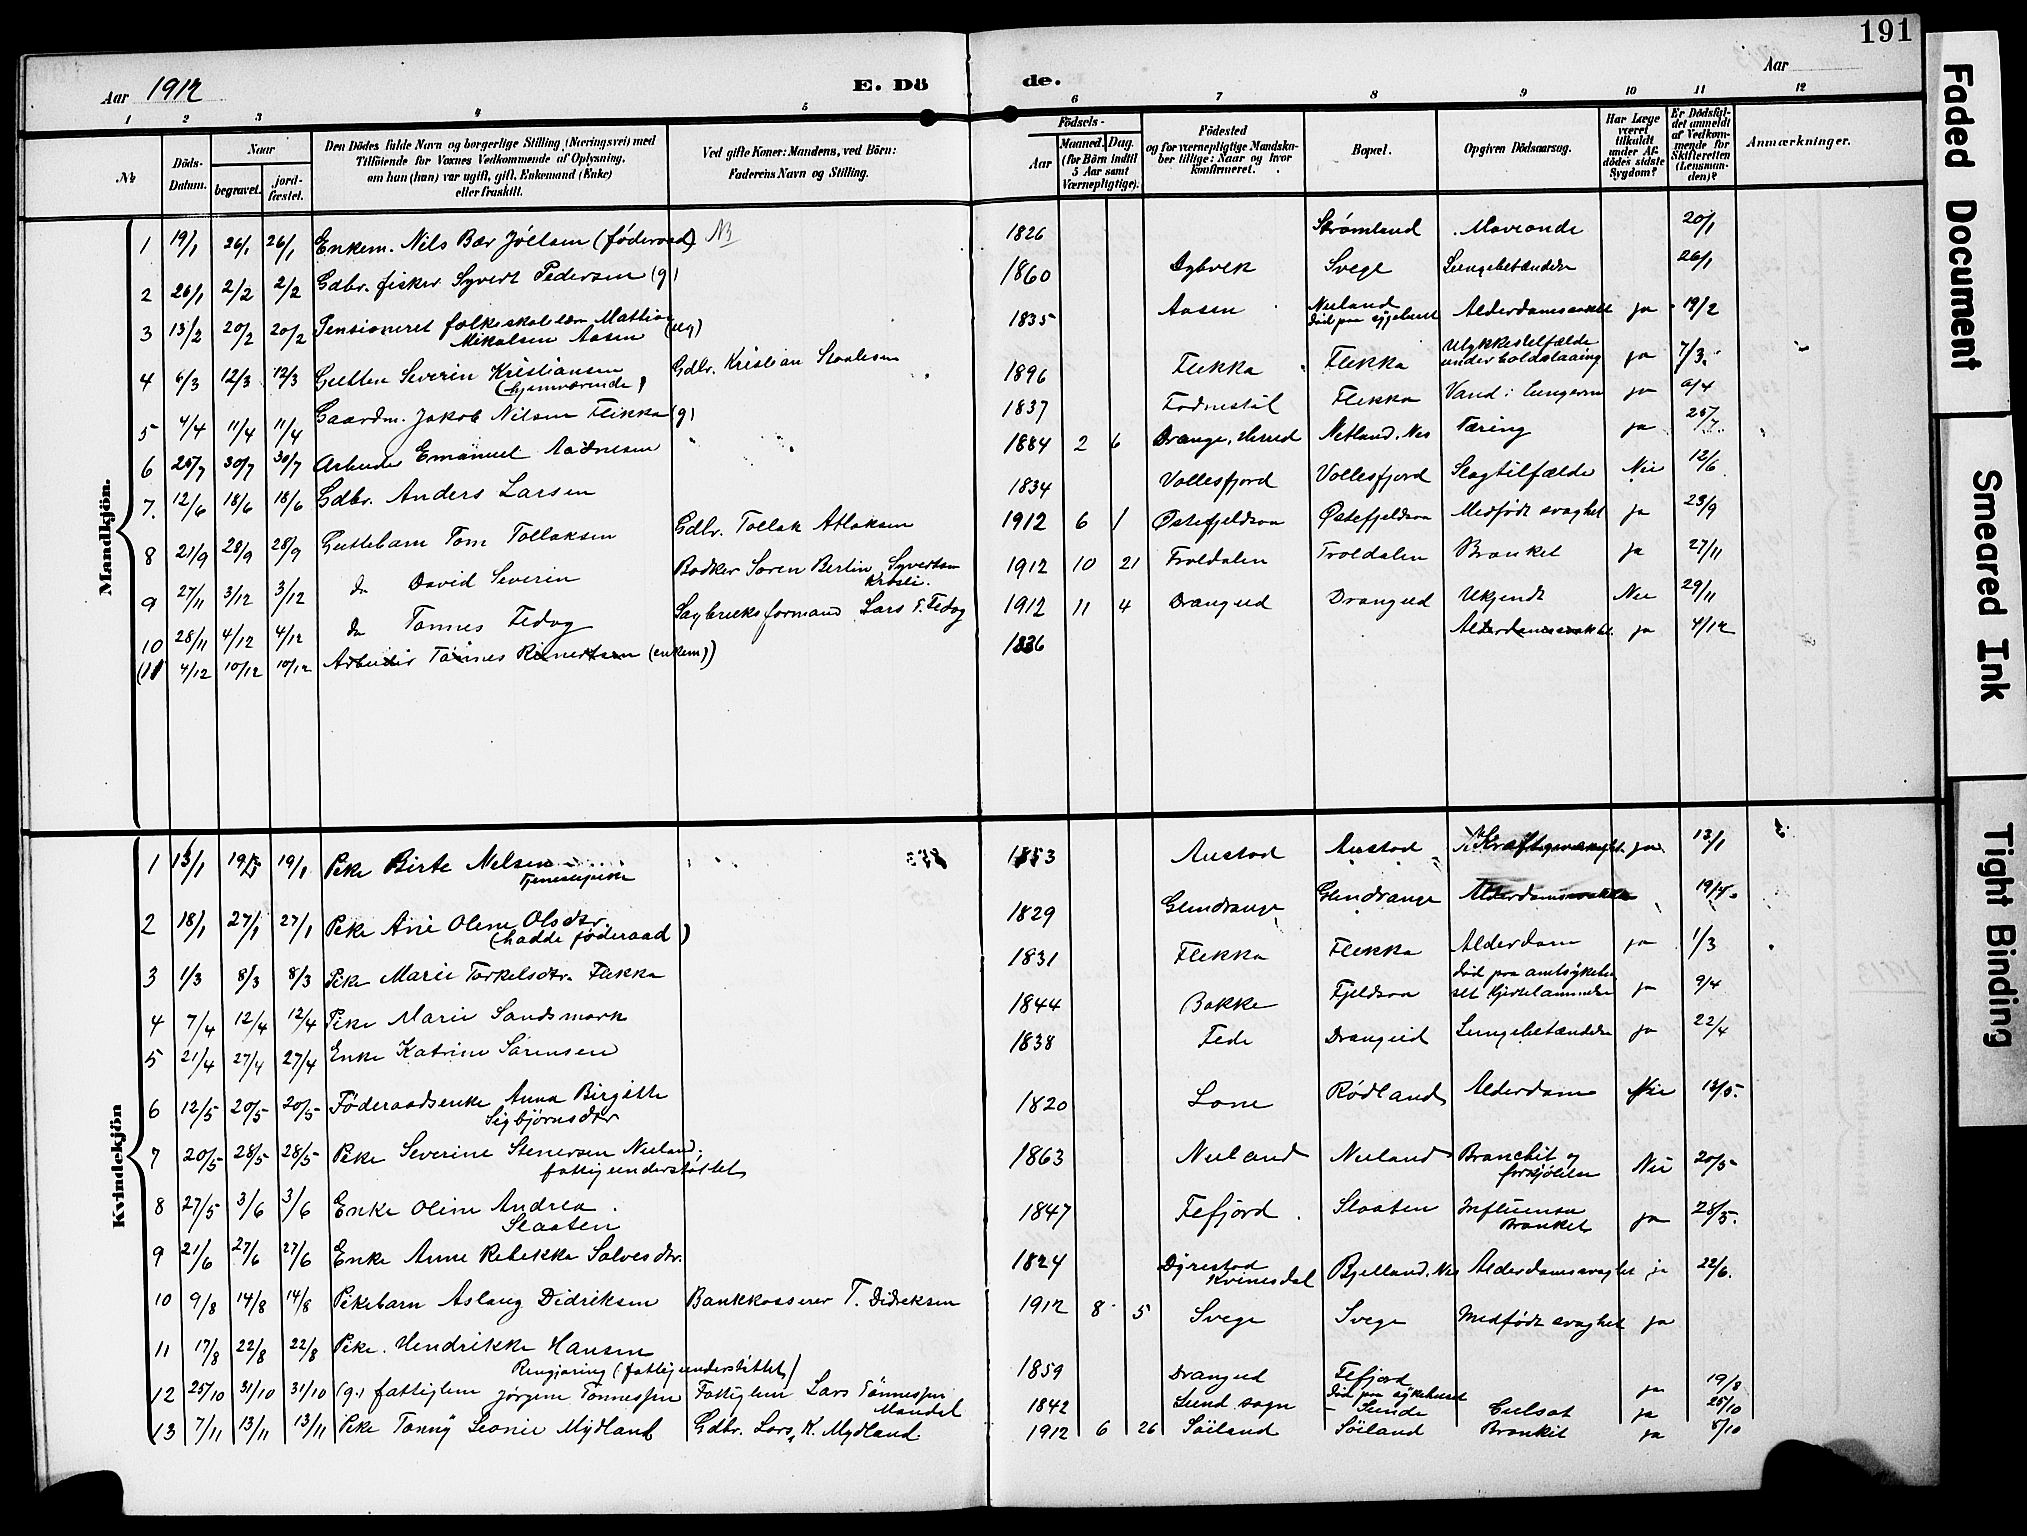 191
Aar 1912
E. Dö
de.
Aar
1 2 3 4 5 6 7 8 9 10 11 12
№
Döds-Datum.
Naar
begravet.
jord-fæstet.
Den Dödes fulde Navn og borgerlige Stilling (Næringsvei) med
Tilföiende for Voxnes Vedkommende af Oplysning,
om hun (han) var ugift, gift, Enkemand (Enke)
eller fraskilt.
Ved gifte Koner: Mandens, ved Börn:
Faderens Navn og Stilling.
Födsels-
Aar
Maaned. Dag.
(for Börn indtil
5 Aar samt
Værnepligtige).
Födested
og for værnepligtige Mandska-
ber tillige: Naar og hvor
konfirmeret.
Bopæl.
Opgiven Dödsaarsag.
Har Læge
været
tilkaldt
under Af-
dödes sidste
Sygdom?
Er Dödsfal-
det anmeldt
af Vedkom-
mende for
Skifteretten
(Lensman-
den)?
Anmærkninger.
Mandkjön.
1 19/1 26/1 26/1 Enkem. Nils Bær Jóelsen (föderaad) NB 1826 Strømland Mavaonde 20/1
2 26/1 2/2 2/2 Gdbr. fisker Syvert Pedersen (g) 1860 Dybvik Svege Lungebetændelse 26/1
3 13/2 20/2 20/2 Pensioneret folkeskolelærer Mathias
Mikalsen Aasen (ug) 1835 Aasen Nuland
död paa sygehuset Alderdomssvakhet ja 19/2
4 6/3 12/3 12/3 Gutten Severin Kristiansen
(hjemværende) Gdbr. Kristian Staalesen 1896 Flikka Flikka Ulykkestilfælde
ja 7/3
5 4/4 11/4 11/4 Gaardm. Jakob Nilsen Flikka (g) 1837 Fodnestøl Flikka Vand i lungerne ja 9/4
6 25/7 30/7 30/7 Arbeider Emanuel Aadnesen 1884 2 6 Drange, Herred Netland. Nes Tæring ja 25/7
7. 12/6 18/6 18/6 Gdbr. Anders Larsen 1834 Vollesfjord Vollesfjord Slagtilfælde Nei 12/6
8 21/9 28/9 28/9 Guttebarn Tom Tollaksen Gdbr. Tollak Atlaksen 1912 6 1 Østefjeldsaa Østefjeldsaa Medfödt svaghet ja 23/9
9 27/11 3/12 3/12 do David Severin Bødker Søren Bertin Syvertsen
1912 10 21 Troldalen Troldalen Bronkit ja 27/11
10 28/11 4/12 4/12 do Tønnes Fedog Sagbruksformand Lars T. Fedog 1912 11 4 Drangeid Drangeid Ukjendt Nei 29/11
(11 4/12 10/12 10/12 Arbeider Tönnes Reinertsen (enkem)) 1836 Alderdomssvakhet ja 4/12
Kvindekjön
1 13/1 19/1 19/1 Pike Birte Nelsen
Tjenestepike 1853 Austad Austad ja 13/1
2 18/1 27/1 27/1 Pike Ane Oline Olsdtr
(hadde föderaad) 1829 Glendrange Glendrange Alderdomssvakhet 19/1
3 1/3 8/3 8/3 Pike Marie Torkelsdtr. Flikka 1831 Flikka Flikka Alderdom ja 1/3
4 7/4 12/4 12/4 Pike Marie Sandsmark 1844 Bakke Fjeldsaa död paa amtsykehu-
set ja 9/4
5 21/4 27/4 27/4 Enke Katrine Sørensen 1838 Fede Drangeid Lungebetændelse ja 22/4
6 12/5 20/5 20/5 Föderaadsenke Anna Birgitte
Sigbjörnsdtr 1820 Lone Rödland Alderdom Nei 13/5.
7 20/5 28/5 28/5 Pike Severine Stenersen Nuland;
fattigunderstöttet 1863 Nuland Nuland Bronchit og
forkjölelse Nei 20/5
8 27/5 3/6 3/6 Enke Oline Andrea
Slaaten 1847 Fefjord Slaaten Influensa
Bronkit ja 28/5.
9 21/6 27/6 27/6 Enke Anne Rebekka Salvesdtr. 1824 Dyrestad
Kvinesdal Bjelland. Nes Alderdomssvaghet ja 22/6.
10 9/8 14/8 14/8 Pikebarn Aslaug Didriksen Bankkasserer T. Didriksen 1912 8 5 Svege Svege Medfödt svaghet ja
11 17/8 22/8 22/8 Pike. Hendrikke Hansen
Rengjøring (fattigunderstöttet) 1859 Drangeid Fefjord ja 19/8
12 25/10 31/10 31/10 (g.) fattiglem Jörgine Tønnessen Fattiglem Lars Tönnessen
Mandal 1842 Lund sogn död paa sykehuset
- Lunde ja 25/10
13 7/11 13/11 13/11 Pike Tomÿ Leonie Mÿdland Gdbr. Lars K. Mydland 1912 6 26 Söiland Söiland Bronkit ja 8/10
Faded Document
Smeared Ink
Tight Binding